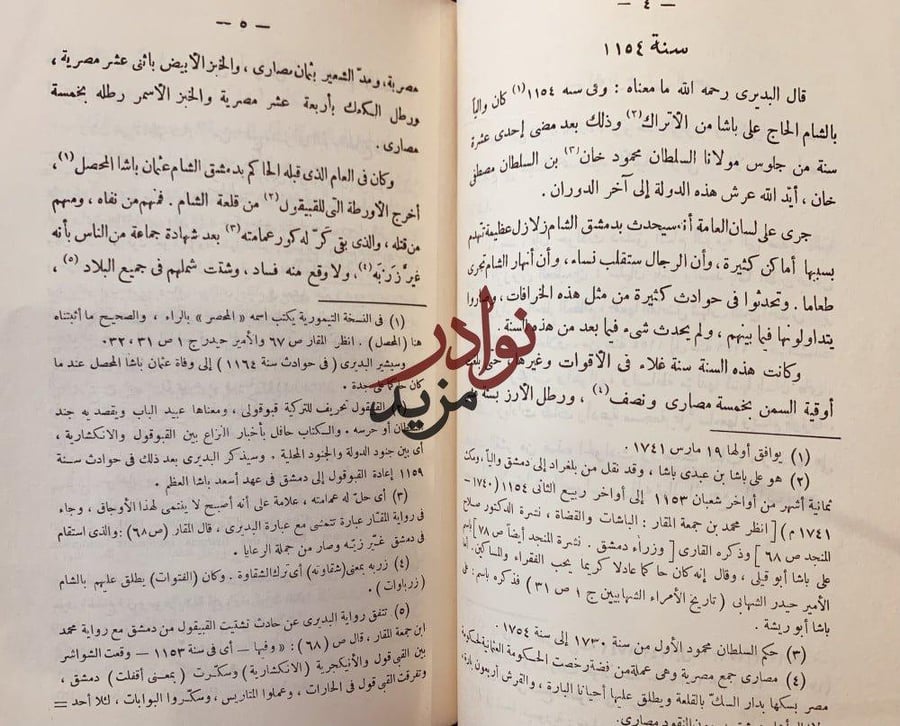 — ٤ —
سنة ١١٥٤
قال البديرى رحمه الله ما معناه : وفى سنه ١١٥٤ (١) كان والياً
بالشام الحاج على باشا من الأتراك (٢) وذلك بعد مضى إحدى عشرة
سنة من جلوس مولانا السلطان محمود خان (٣) بن السلطان مصطفى
خان ، أيّد الله عرش هذه الدولة إلى آخر الدوران .
جرى على لسان العامة أنه سيحدث بدمشق الشام زلازل عظيمة تتهدم
بسببها أماكن كثيرة ، وأن الرجال ستقلب نساء ، وأن أنهار الشام تجرى
طعاما . وتحدثوا فى حوادث كثيرة من مثل هذه الخرافات ، وصاروا
يتداولونها فيما بينهم ، ولم يحدث شىء فيما بعد من هذه السنة .
وكانت هذه السنة سنة غلاء فى الأقوات وغيرها حتى بلغت
أوقية السمن بخمسة مصارى ونصف (٤) ، ورطل الأرز بستة
(١) يوافق أولها ١٩ مارس ١٧٤١ .
(٢) هو على باشا بن عبدى باشا ، وقد نقل من بلغراد إلى دمشق والياً ، ومكث
ثمانية أشهر من أواخر شعبان ١١٥٣ إلى أواخر ربيع الثانى ١١٥٤ (١٧٤٠ –
١٧٤١ م) [ انظر محمد بن جمعة المقار : الباشات والقضاة ، نشرة الدكتور صلاح
المنجد ص ٦٨ ] وذكره القارى [ وزراء دمشق . نشرة المنجد أيضاً ص ٧٨ ] باسم
على باشا أبو قيلى ، وقال إنه كان حاكما عادلا كريما يحب الفقراء والمساكين . أما
الأمير حيدر الشهابى ( تاريخ الأمراء الشهابيين ج ١ ص ٣١ ) فذكره باسم : على
باشا أبو ريشة .
(٣) حكم السلطان محمود الأول من سنة ١٧٣٠ إلى سنة ١٧٥٤ .
(٤) مصارى جمع مصرية وهى عملة من فضة رخصت الحكومة العثمانية لحكومة
مصر بسكها بدار السكّ بالقلعة ويطلق عليها أحيانا البارة ، والقرش أربعون بارة ،
النقود مصارى .
— ٥ —
مصرية ، ومدّ الشعير بثمان مصارى ، والخبز الأبيض باثنى عشر مصرية ،
ورطل الكعك بأربعة عشر مصرية والخبز الأسمر رطله بخمسة
مصارى .
وكان فى العام الذى قبله الحاكم بدمشق الشام عثمان باشا المحصل (١) ،
أخرج الأورطة التى للقبيقول (٢) من قلعة الشام . فمنهم من نفاه ، ومنهم
من قتله ، والذى بقى كَرّ له كور عمامته (٣) بعد شهادة جماعة من الناس بأنه
غيَّر زَرَبَه (٤) ، ولا وقع منه فساد ، وشتت شملهم فى جميع البلاد (٥) ،
(١) فى النسخة التيمورية يكتب اسمه « المحصر » بالراء ، والصحيح ما أثبتناه
هنا (المحصل) . انظر المقار ص ٦٧ والأمير حيدر ج ١ ص ٣١ ، ٣٢ .
وسيشير البديرى ( فى حوادث سنة ١١٦٤ ) إلى وفاة عثمان باشا المحصل عند ما
كان حاكما على جدة .
القبيقول تحريف للتركية قبوقولى ، ومعناها عبيد الباب ويقصد به جند
السلطان أو حرسه . والكتاب حافل بأخبار النزاع بين القبوقول والانكشارية ،
أى بين جنود الدولة والجنود المحلية . وسيذكر البديرى بعد ذلك فى حوادث سنة
١١٥٩ إعادة القبوقول إلى دمشق فى عهد أسعد باشا العظم .
(٣) أى حلّ له عمامته ، علامة على أنه أصبح لا ينتمى لهذا الأوجاق ، وجاء
فى رواية المقار عبارة تتمشى مع عبارة البديرى ، قال المقار (ص ٦٨) : والذى استقام
فى دمشق غيّر زيّه وصار من جملة الرعايا .
(٤) زربه بمعنى (شقاوته) أى ترك الشقاوة . وكان (الفتوات) يطلق عليهم بالشام
( زرباوات ) .
(٥) تتفق رواية البديرى عن حادث تشتيت القبيقول من دمشق مع رواية محمد
ابن جمعة المقار ، قال ص (٦٨) : « وفيها – أى فى سنة ١١٥٣ – وقعت الشواشر
بين القبى قول والأنكجرية (الانكشارية) وسكّرت ( بمعنى أقفلت ) دمشق ،
وتفرقت القبى قول فى الحارات ، وعملوا المتاريس ، وسكّروا البوابات ، لئلا أحد =
نوادر
مزيد